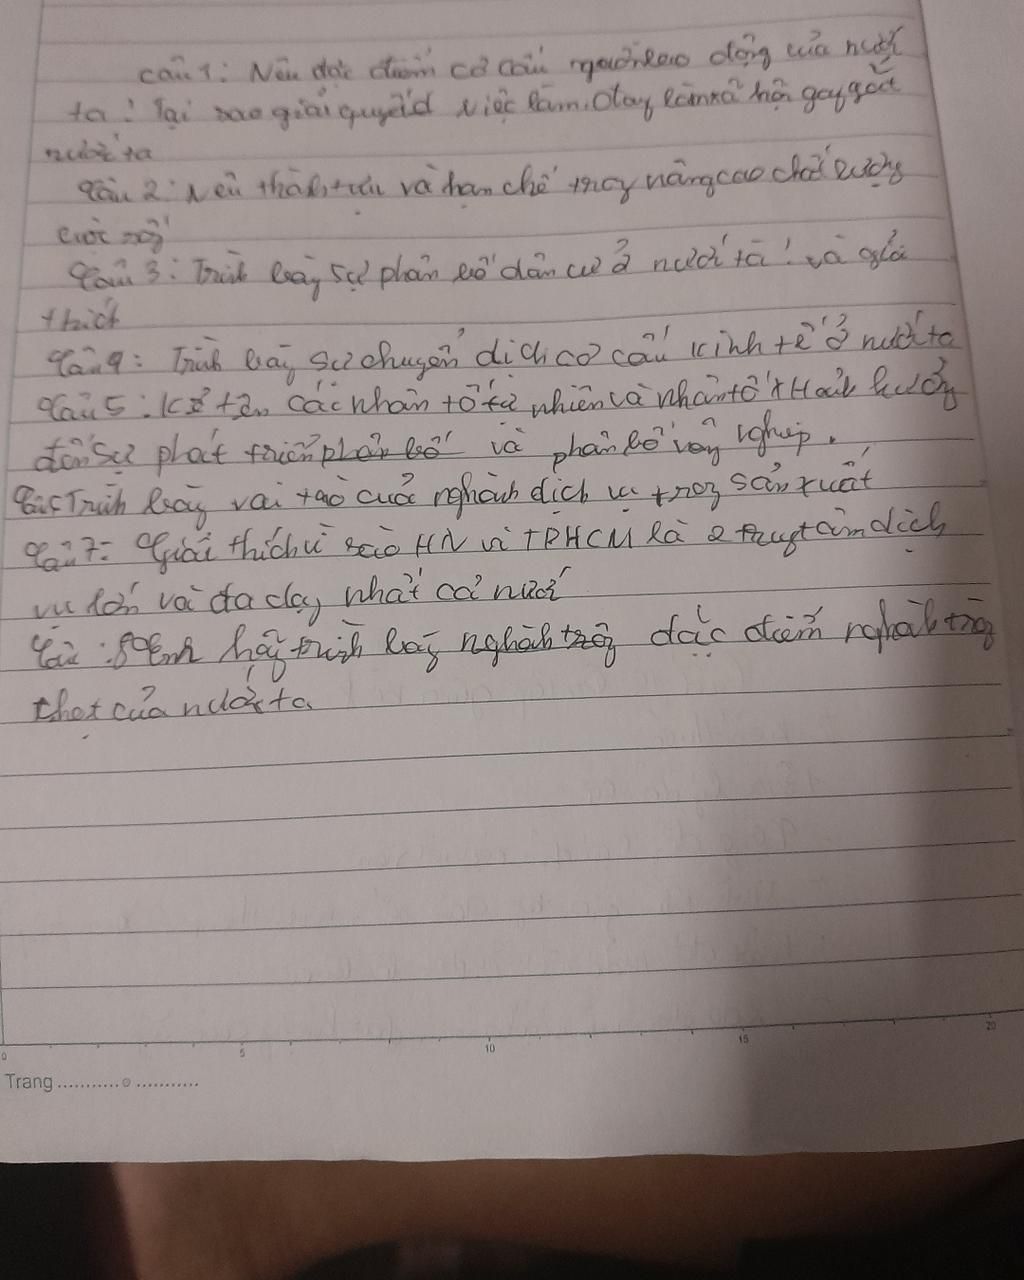 câu 1: Nêu đặc điểm cơ cấu nguồn lao động của nước
ta? Tại sao giải quyết việc làm đang là xã hội gay gắt
nước ta
Câu 2: Nêu thành tựu và hạn chế trong nâng cao chất lượng
cuộc sống
Câu 3: Trình bày sự phân bố dân cư ở nước ta! và giải
thích
Câu 4: Trình bày sự chuyển dịch cơ cấu kinh tế ở nước ta
Câu 5: Kể tên các nhân tố tự nhiên và nhân tố XH ảnh hưởng
đến sự phát triển phân bố và phân bố nông nghiệp.
Trình bày vai trò của nghành dịch vụ trong sản xuất
Câu 7: Giải thích vì sao HN và TPHCM là 2 trung tâm dịch
vụ lớn và đa dạng nhất cả nước
Câu: 8 Em hãy trình bày nghành trồng đặc điểm nghành trồng
trọt của nước ta
0 5 10 15 20
Trang